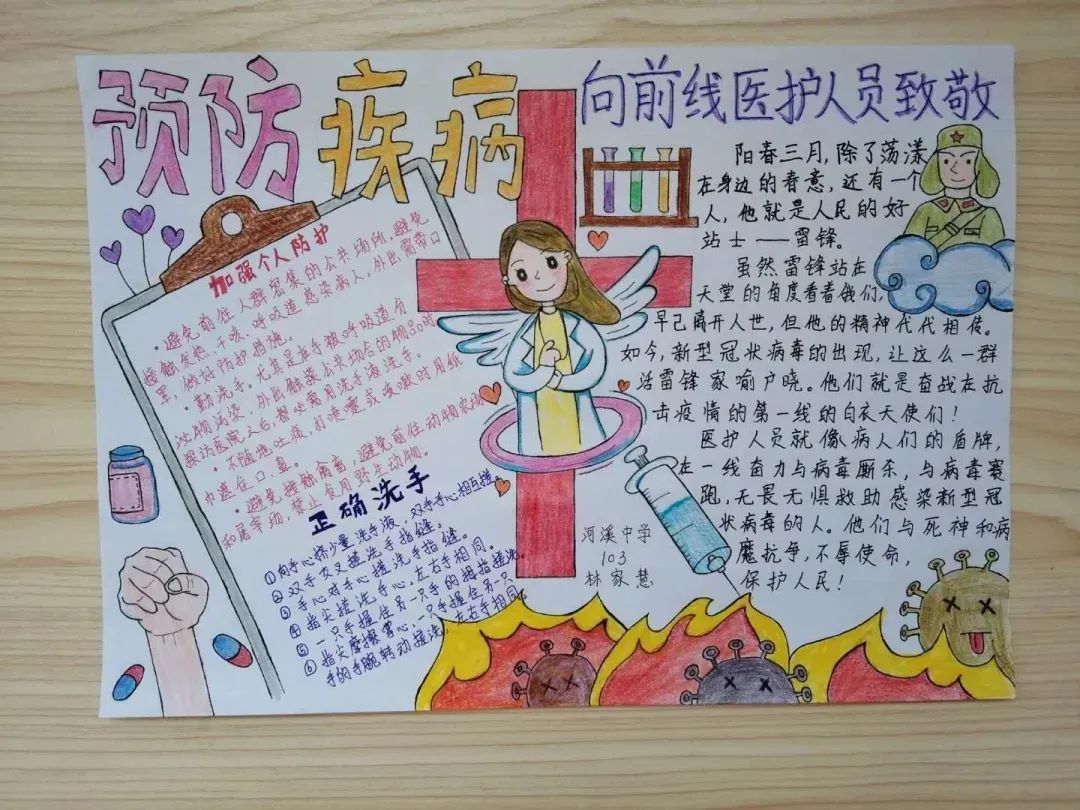 预防疾病
向前线医护人员致敬
加强个人防护
·避免前往人群密集的公共场所，避免
接触发热、干咳、呼吸道感染病人，外出需带口
罩，做好防护措施。
·勤洗手。尤其是在手被呼吸道分
泌物污染，外出触摸公共场合的物品的时
探访医院之后，都必需用洗手液洗手。
·不随地吐痰，打喷嚏或咳嗽时用纸
巾遮住口、鼻。
·避免接触禽畜，避免前往动物农场
和屠宰场，禁止食用野生动物。
正确洗手
①向手心挤少量洗手液，双手手心相互搓
②双手交叉搓洗手指缝。
③手心对手心搓洗手指缝。
④指尖搓洗手心，左右手相同。
⑤一只手握住另一只手的拇指搓洗。
⑥指尖摩擦掌心，一只手握住另一只
手的手腕转动搓洗，左右手相同。
阳春三月，除了荡漾
在身边的春意，还有一个
人，他就是人民的好
站士——雷锋。
虽然雷锋站在
天堂的角度看着我们，
早已离开人世，但他的精神代代相传。
如今，新型冠状病毒的出现，让这么一群
活雷锋家喻户晓。他们就是奋战在抗
击疫情的第一线的白衣天使们！
医护人员就像病人们的盾牌，
在一线奋力与病毒厮杀，与病毒赛
跑，无畏无惧救助感染新型冠
状病毒的人。他们与死神和病
魔抗争，不辱使命，
保护人民！
河溪中学
103
林家慧